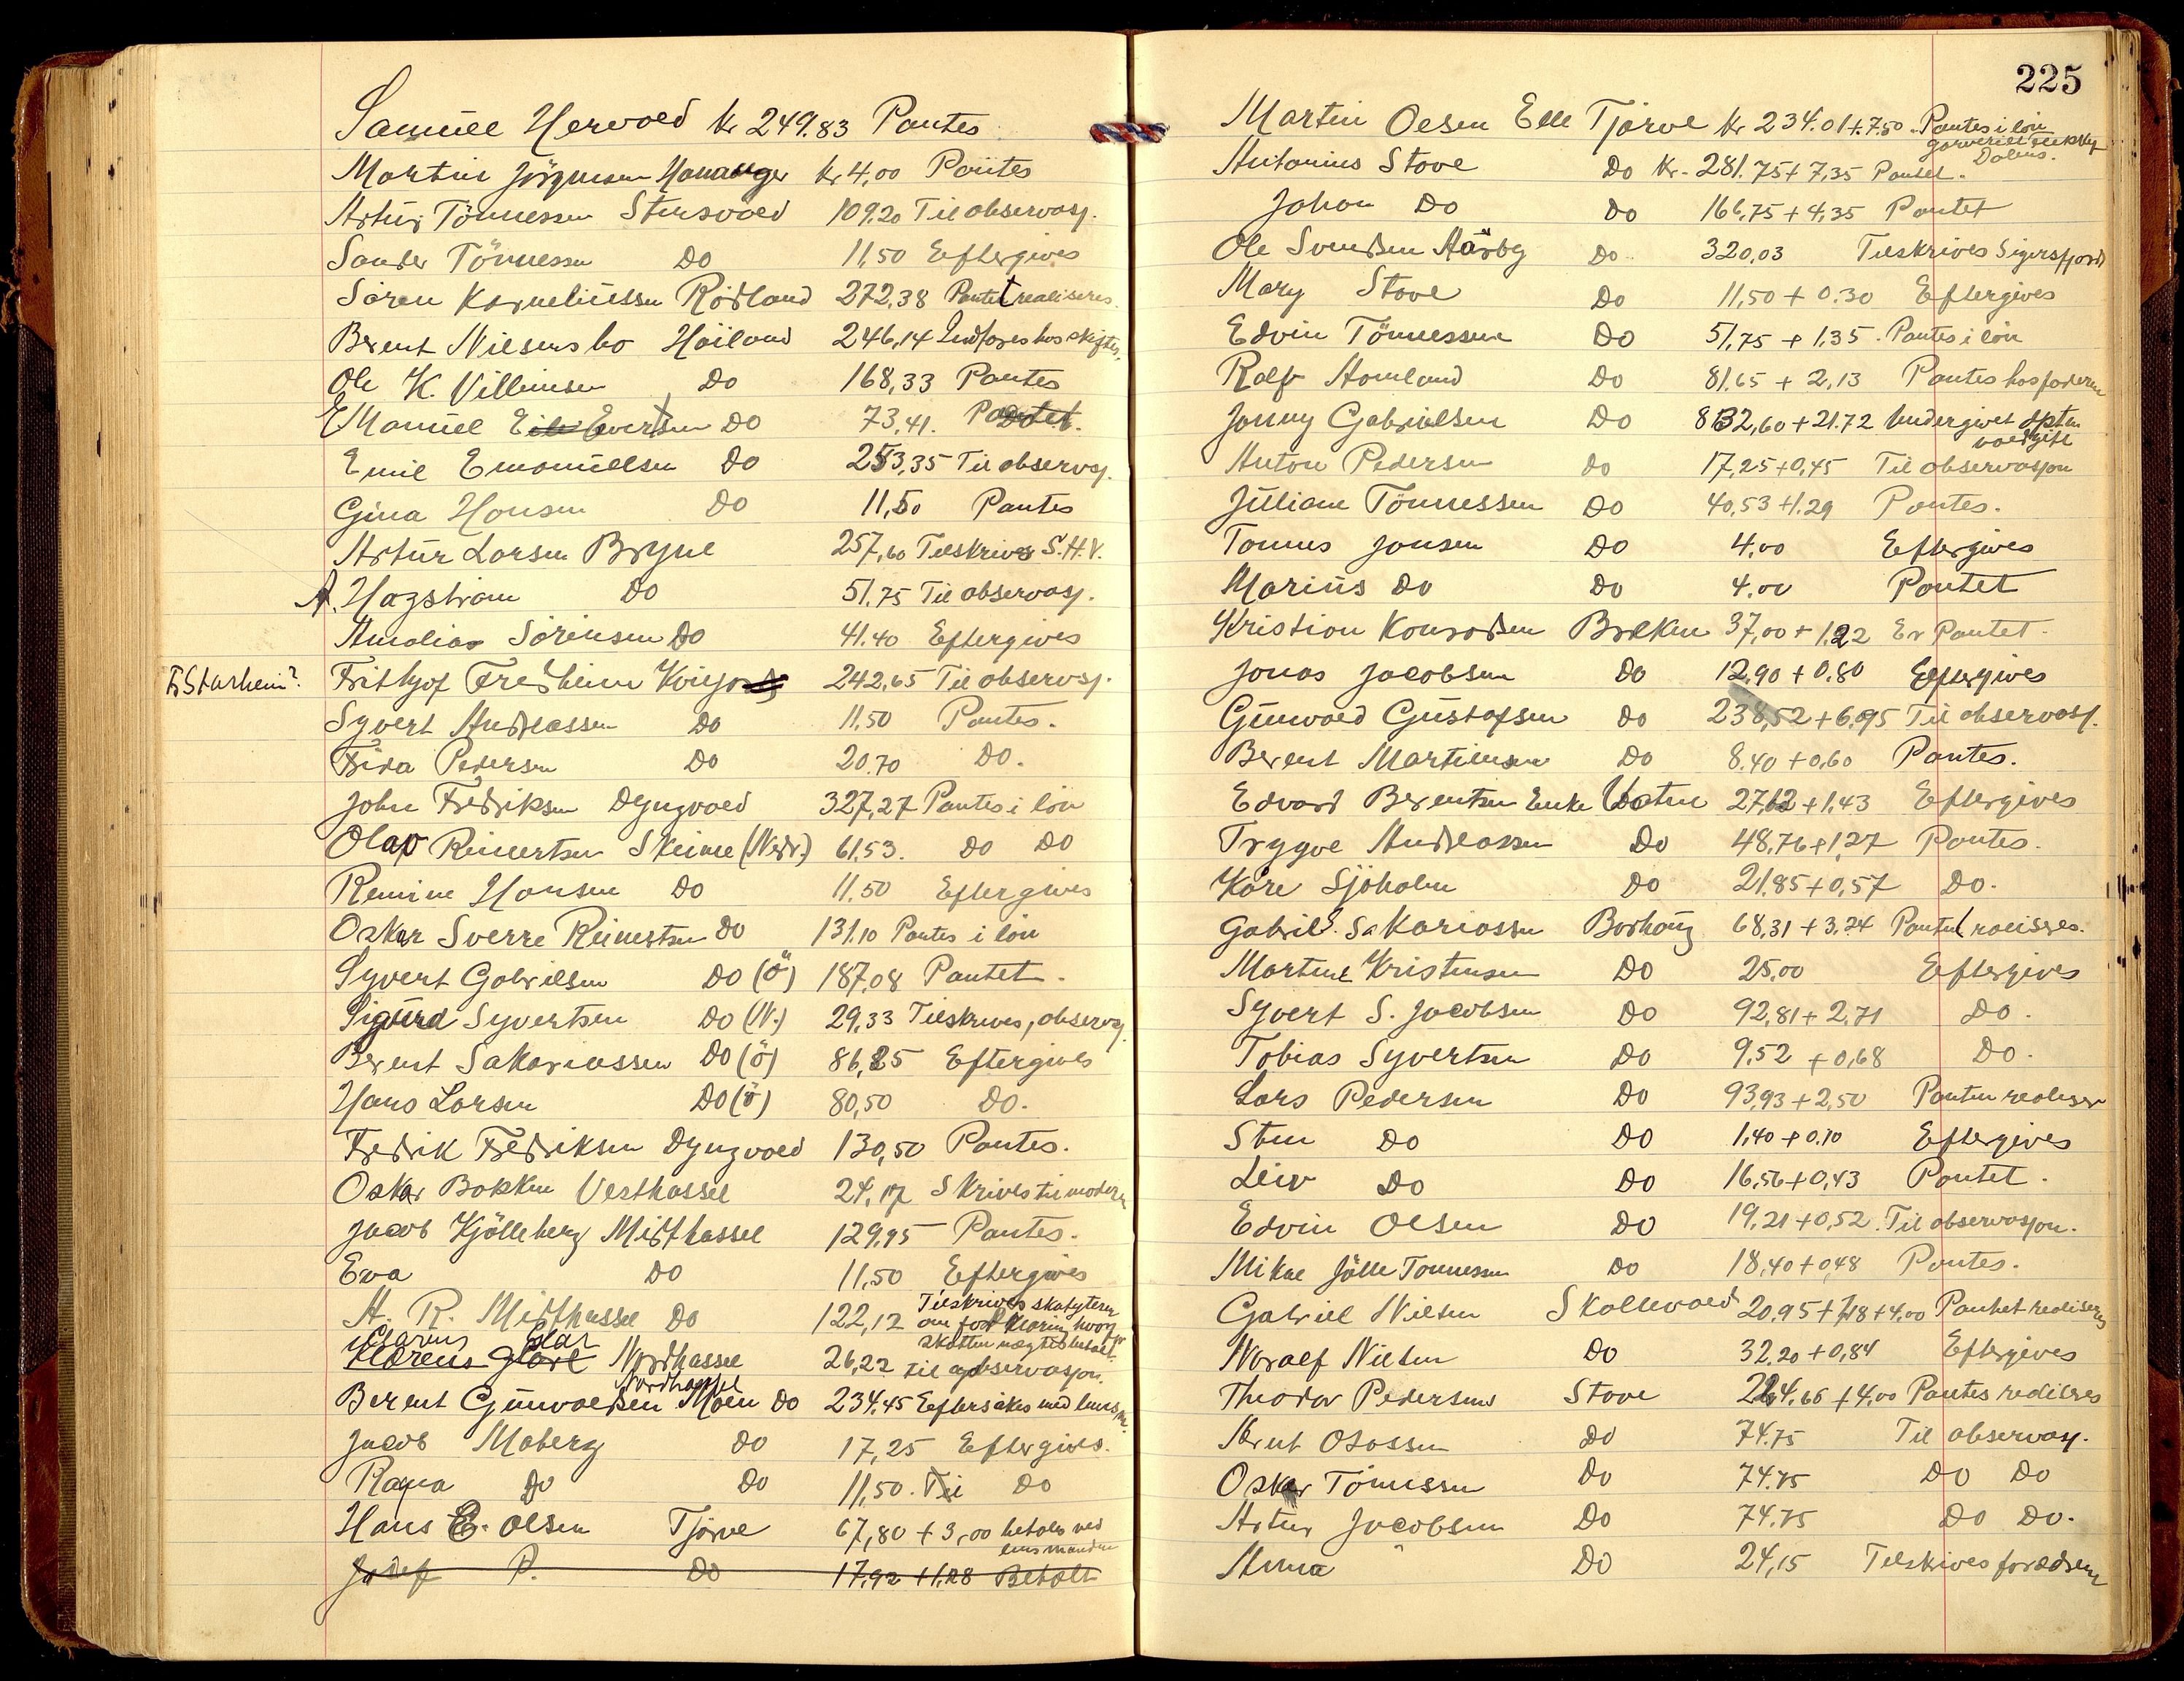 Samuel Hervold kr 249.83 Pantes
Martin Jörgensen Hananger kr 4,00 Pantes
Artur Tönnessen Stensvold 109,20 Til observasj.
Sander Tönnessen Do 11,50 Eftergives
Sören Korneliussen Rödland 272,38 Pantet realiseres.
Berent Nielsens bo Höiland 246,14 Indföres hos skifter.
Ole K. Villumsen Do 168,33 Pantes
Emanuel Evertsen Do 73,41. Pantet.
Emil Emanuellsen Do 253,35 Til observasj.
Gina Hansen Do 11,50 Pantes
Artur Larsen Bryne 257,60 Tilskrives S.H.V.
A. Hagström Do 51,75 Til observasj.
Amalias Sörensen Do 41.40 Eftergives
Fr Starheim? Frithjof Fredheim 242,65 Til observasj.
Syvert Andreassen Do 11,50 Pantes.
Frida Pedersen Do 20.70 Do.
John Fredriksen Dyngvold 327,27 Pantes i lön
Olav Reinertsen Skeime (Nedr.) 61,53. Do Do
Remine Hansen Do 11,50 Eftergives
Oskar Sverre Reinertsen Do 131,10 Pantes i lön
Syvert Gabrielsen Do (Ö) 187,08 Pantet.
Sigurd Syvertsen Do (N.) 29,33 Tilskrives, observasj.
Berent Sakariassen Do (ö) 86,25 Eftergives
Hans Larsen Do (ö) 80,50 Do.
Fredrik Fredriksen Dyngvold 130,50 Pantes.
Oskar Bakken Vesthassel 24,17 Skrives til moderen
Jacob Kjölleberg Midthassel 129,95 Pantes.
Eva Do 11,50 Eftergives
A. R. Midthassel Do 122,12 Tilskrives skatyteren
om
skatten nægtes betalt.
Klarens Nordhassel 26,22 til observasjon.
Nordhassel
Berent Gunvaldsen Moen Do 234.45 Eftersökes med lensm.
Jacob Moberg Do 17,25 Eftergives.
Ragna Do Do 11,50. Til Do
Hans E. Olsen Tjörve 67,80 + 3,00 betales ved
lensmanden
Josef P. Do 17,92 + 1,28 Betalt
225
Martin Olsen Elle Tjörve kr 234.01 + 7.50. Pantes i lön
Antonius Stove Do kr. 281.75 + 7,35 Pantet.
Johan Do Do 166,75 + 4,35 Pantet
Ole Svendsen Aarby Do 320,03 Tilskrives Sigersfjord
Mary Stove Do 11,50 + 0.30 Eftergives
Edvin Tönnessen Do 51,75 + 1,35. Pantes i lön
Ralf Homland Do 81.65 + 2,13 Pantes hos faderen
Jonny Gabrielsen Do 832,60 + 21.72
Anton Pedersen Do 17,25 + 0,45 Til observasjon
Juliane Tönnessen Do 40,53 + 1.29 Pantes.
Tonnes Jensen Do 4,00 Eftergives
Marius Do Do 4,00 Pantet
Kristian Konradsen Brekne 37,00 + 1,22 Er Pantet.
Jonas Jacobsen Do 12,90 + 0,80 Eftergives
Gunvald Gustafsen Do 238,52 + 6,095 Til observasj.
Berent Martinsen Do 8.40 + 0,60 Pantes.
Edvard Berentsen Enke Vatne 27,12 + 1,43 Eftergives
Trygve Andreassen Do 48,76 + 1,27 Pantes.
Kåre Sjöholm Do 21,85 + 0,57 Do.
Gabriel Sakariassen Borhaug 68,31 + 3,24 Pantet raliseres.
Martine Kristensen Do 25,00 Eftergives
Syvert S. Jacobsen Do 92,81 + 2,71 Do.
Tobias Syvertsen Do 9,52 + 0,68 Do.
Lars Pedersen Do 93,93 + 2,50 Panten realiser
Sten Do Do 1,40 + 0,10 Eftergives
Leiv Do Do 16,56 + 0,43 Pantet.
Edvin Olsen Do 19,21 + 0,52. Til observasjon.
Mikal Jölle Tonnessen Do 18,40 + 0,48 Pantes.
Gabriel Nilsen Skollevold 20,95 + 1,18 + 4.00 Pantet realiseres
Noralf Nilsen Do 32,20 + 0,84 Eftergives
Theodor Pedersens Stove 224,66 + 4,00 Pantes rediseres
Berent Osassen Do 74.75 Til observasj.
Oskar Tönnessen Do 74.75 Do Do
Artur Jacobsen Do 74.75 Do Do.
Anna " Do 24,15 Tilskrives forældrene